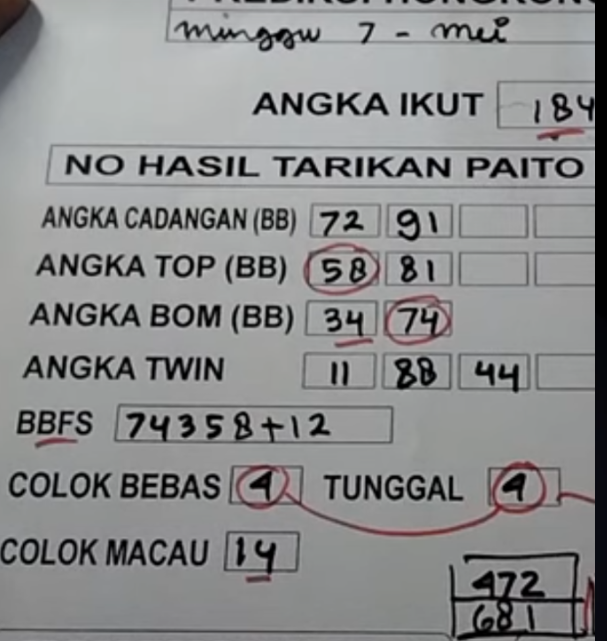 minggu 7 - mei
ANGKA IKUT 184
NO HASIL TARIKAN PAITO
ANGKA CADANGAN (BB) 72 91
ANGKA TOP (BB) 58 81
ANGKA BOM (BB) 34 74
ANGKA TWIN 11 88 44
BBFS 74358+12
COLOK BEBAS 4 TUNGGAL 4
COLOK MACAU 14
472
681